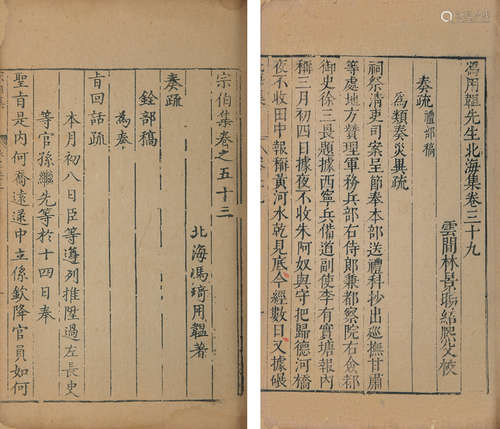 馮用韞先生北海集卷三十九
雲間林景熙父校
奏疏 禮部稿
為類奏災異疏
祠祭清吏司案呈節奉本部送禮科抄出巡撫甘肅
等處地方贊理軍務兵部右侍郎兼都察院右僉都
御史徐三畏題據西寧兵備道副使李有實塘報內
稱三月初四日據夜不收朱阿奴與守把歸德河橋
夜不收田中報稱黃河水乾見底今經數日又據碾
宗伯集卷之五十三
北海馮琦用韞著
奏疏
銓部稿
為奉
旨回話疏
本月初八日臣等遵列推陞過左長史
等官孫繼先等於十四日奉
聖旨是內何喬遠中立係欽降官員如何